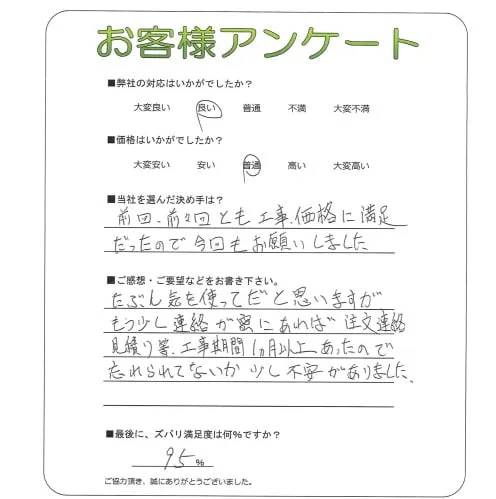 お客様アンケート
■弊社の対応はいかがでしたか？
大変良い 良い 普通 不満 大変不満
■価格はいかがでしたか？
大変安い 安い 普通 高い 大変高い
■当社を選んだ決め手は？
前回、前々回とも工事、価格に満足
だったので今回もお願いしました
■ご感想・ご要望などをお書き下さい。
たぶん気を使ってだと思いますが
もう少し連絡が密にあれば 注文連絡
見積り等、工事期間1ヵ月以上あったので
忘れられてないか少し不安がありました。
■最後に、ズバリ満足度は何%ですか？
95%
ご協力頂き、誠にありがとうございました。